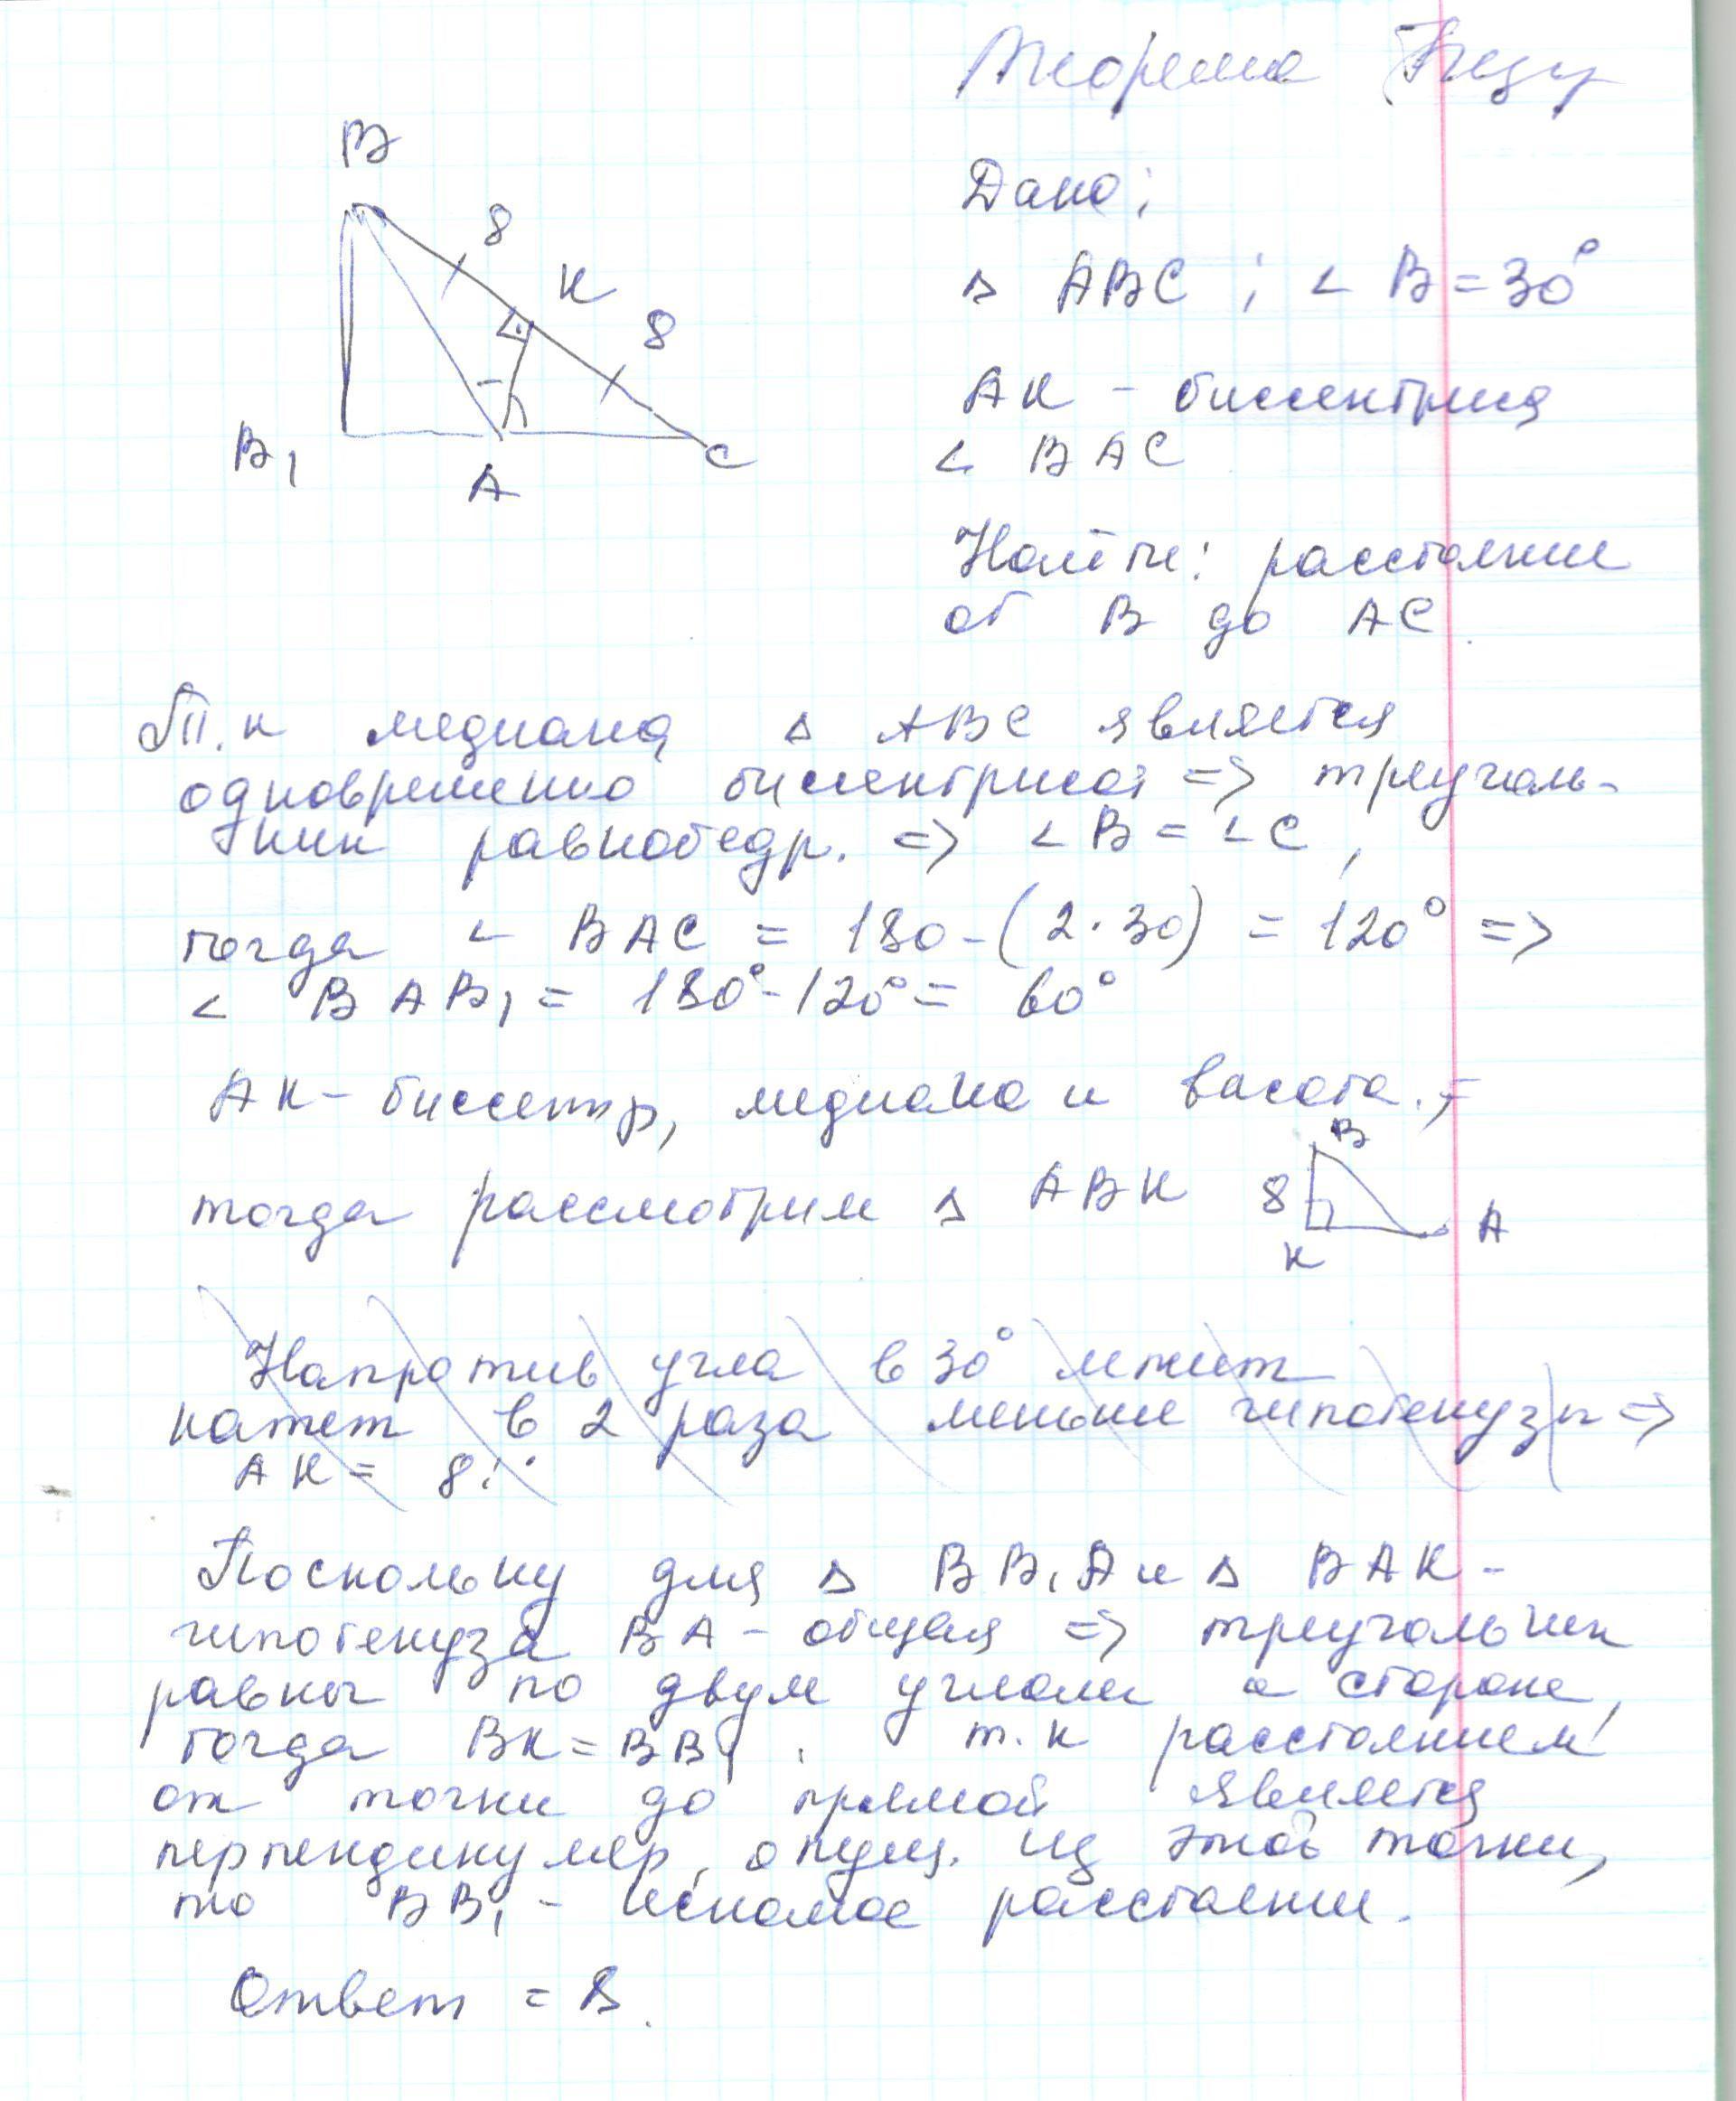 Теорема
Дано:
В
8
К
8
В₁
А
С
△ АВС ; ∠ В = 30°
АК – биссектриса
∠ ВАС
Найти: расстояние
от В до АС.
Т.к медиана △ АВС является
одновременно биссектрисой => треуголь-
ник равнобедр. => ∠ В = ∠ С ,
тогда ∠ ВАС = 180 - (2 · 30) = 120° =>
∠ ВАВ₁ = 180° - 120° = 60°
АК – биссектр, медиана и васота.,
тогда рассмотрим △ АВК
В
8
К
А
Напротив угла в 30° лежит
катет в 2 раза меньше гипотенузы =>
АК = 8 :
Поскольку для △ ВВ₁А и △ ВАК -
гипотенуза ВА – общая => треугольник
равны по двум углам и стороне,
тогда ВК = ВВ₁ . т.к расстоянием
от точки до прямой является
перпендикуляр, опущ. из этой точки,
то ВВ₁ – искомое расстояние.
Ответ = 8.